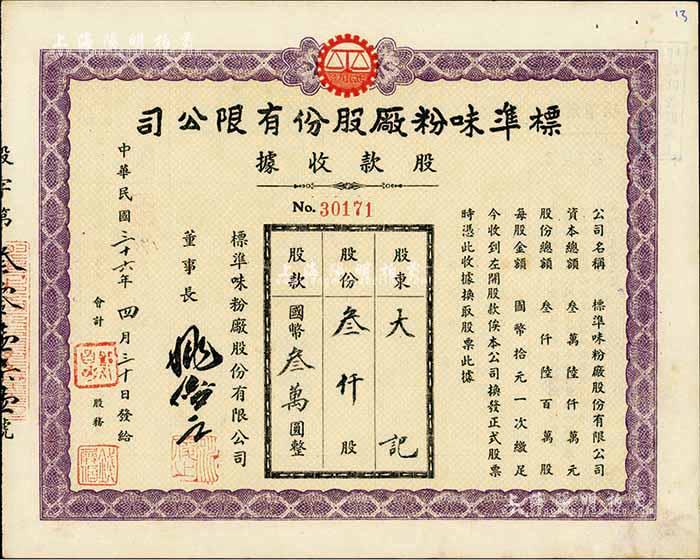 上海陽明拍賣
13
標準味粉廠股份有限公司
股款收據
No. 30171
公司名稱 標準味粉廠股份有限公司
資本總額 叁萬陸仟萬元
股份總額 叁仟陸百萬股
每股金額 國幣拾元一次繳足
今收到左開股款俟本公司換發正式股票
時憑此收據換取股票此據
股東 大記
股份 叁仟股
股款 國幣叁萬圓整
標準味粉廠股份有限公司
董事長
會計
股務
中華民國三十六年四月三十日發給
上海陽明拍賣